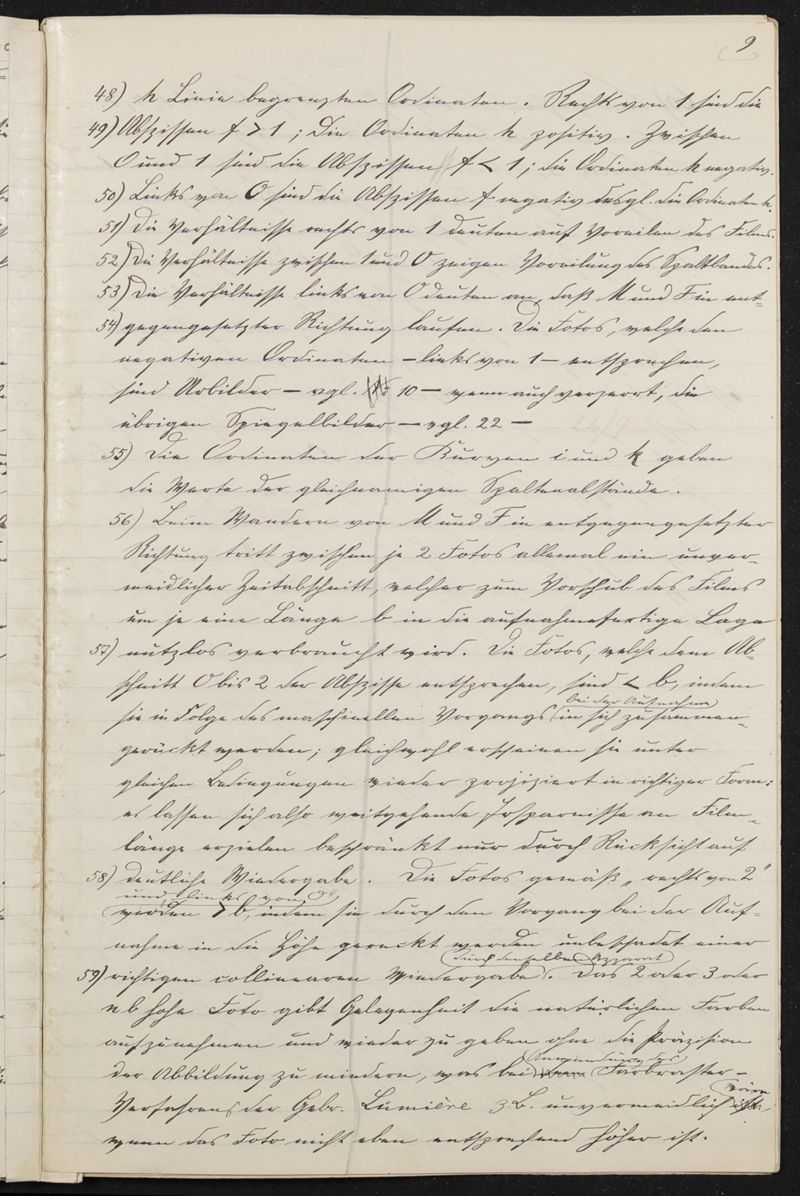 9
48) k Linie begrenzten Ordinaten. Rechts von 1 sind die
49) Abszissen f > 1; die Ordinaten k positiv. Zwischen
0 und 1 sind die Abszissen f < 1; die Ordinaten k negativ.
50) Links von 0 sind die Abszissen f negativ desgl. die Ordinaten k.
51) Die Verhältnisse rechts von 1 deuten auf Voreilen des Films.
52) Die Verhältnisse zwischen 1 und 0 zeigen Voreilung des Spaltbandes.
53) Die Verhältnisse links von 0 deuten an, daß M und F in ent-
54) gegengesetzter Richtung laufen. Die Fotos, welche den
negativen Ordinaten – links von 1 – entsprechen,
sind Urbilder – vgl. 10 – wenn auch verzerrt, die
übrigen Spiegelbilder – vgl. 22 –
55) Die Ordinaten der Kurven i und k geben
die Werte der gleichnamigen Spaltenabstände.
56) Beim Wandern von M und F in entgegengesetzter
Richtung tritt zwischen je 2 Fotos allemal ein unver-
meidlicher Zeitabschnitt, welcher zum Vorschub des Films
um je eine Länge b in die aufnahmefertige Lage
57) nutzlos verbraucht wird. Die Fotos, welche dem Ab-
schnitt 0 bis 2 der Abszisse entsprechen, sind < b, indem
bei der Aufnahme
sie in Folge des maschinellen Vorgangs in sich zusammen-
gerückt werden; gleichwohl erscheinen sie unter
gleichen Bedingungen wieder projiziert in richtiger Form:
es lassen sich also weitgehende Ersparnisse an Film-
länge erzielen beschränkt nur durch Rücksicht auf
58) deutliche Wiedergabe. Die Fotos gemäß „rechts von 2"
und „links von 0"
werden > b, indem sie durch den Vorgang bei der Auf-
nahme in die Höhe gereckt werden unbeschadet einer
durch denselben Apparat
59) richtigen collinearen Wiedergabe. Das 2 oder 3 oder
nb hohe Foto gibt Gelegenheit die natürlichen Farben
aufzunehmen und wieder zu geben ohne die Präzision
Anwendung des
der Abbildung zu mindern, was bei Farbraster-
wäre
Verfahrens der Gebr. Lumière z.B. unvermeidlich ist,
wenn das Foto nicht eben entsprechend höher ist.